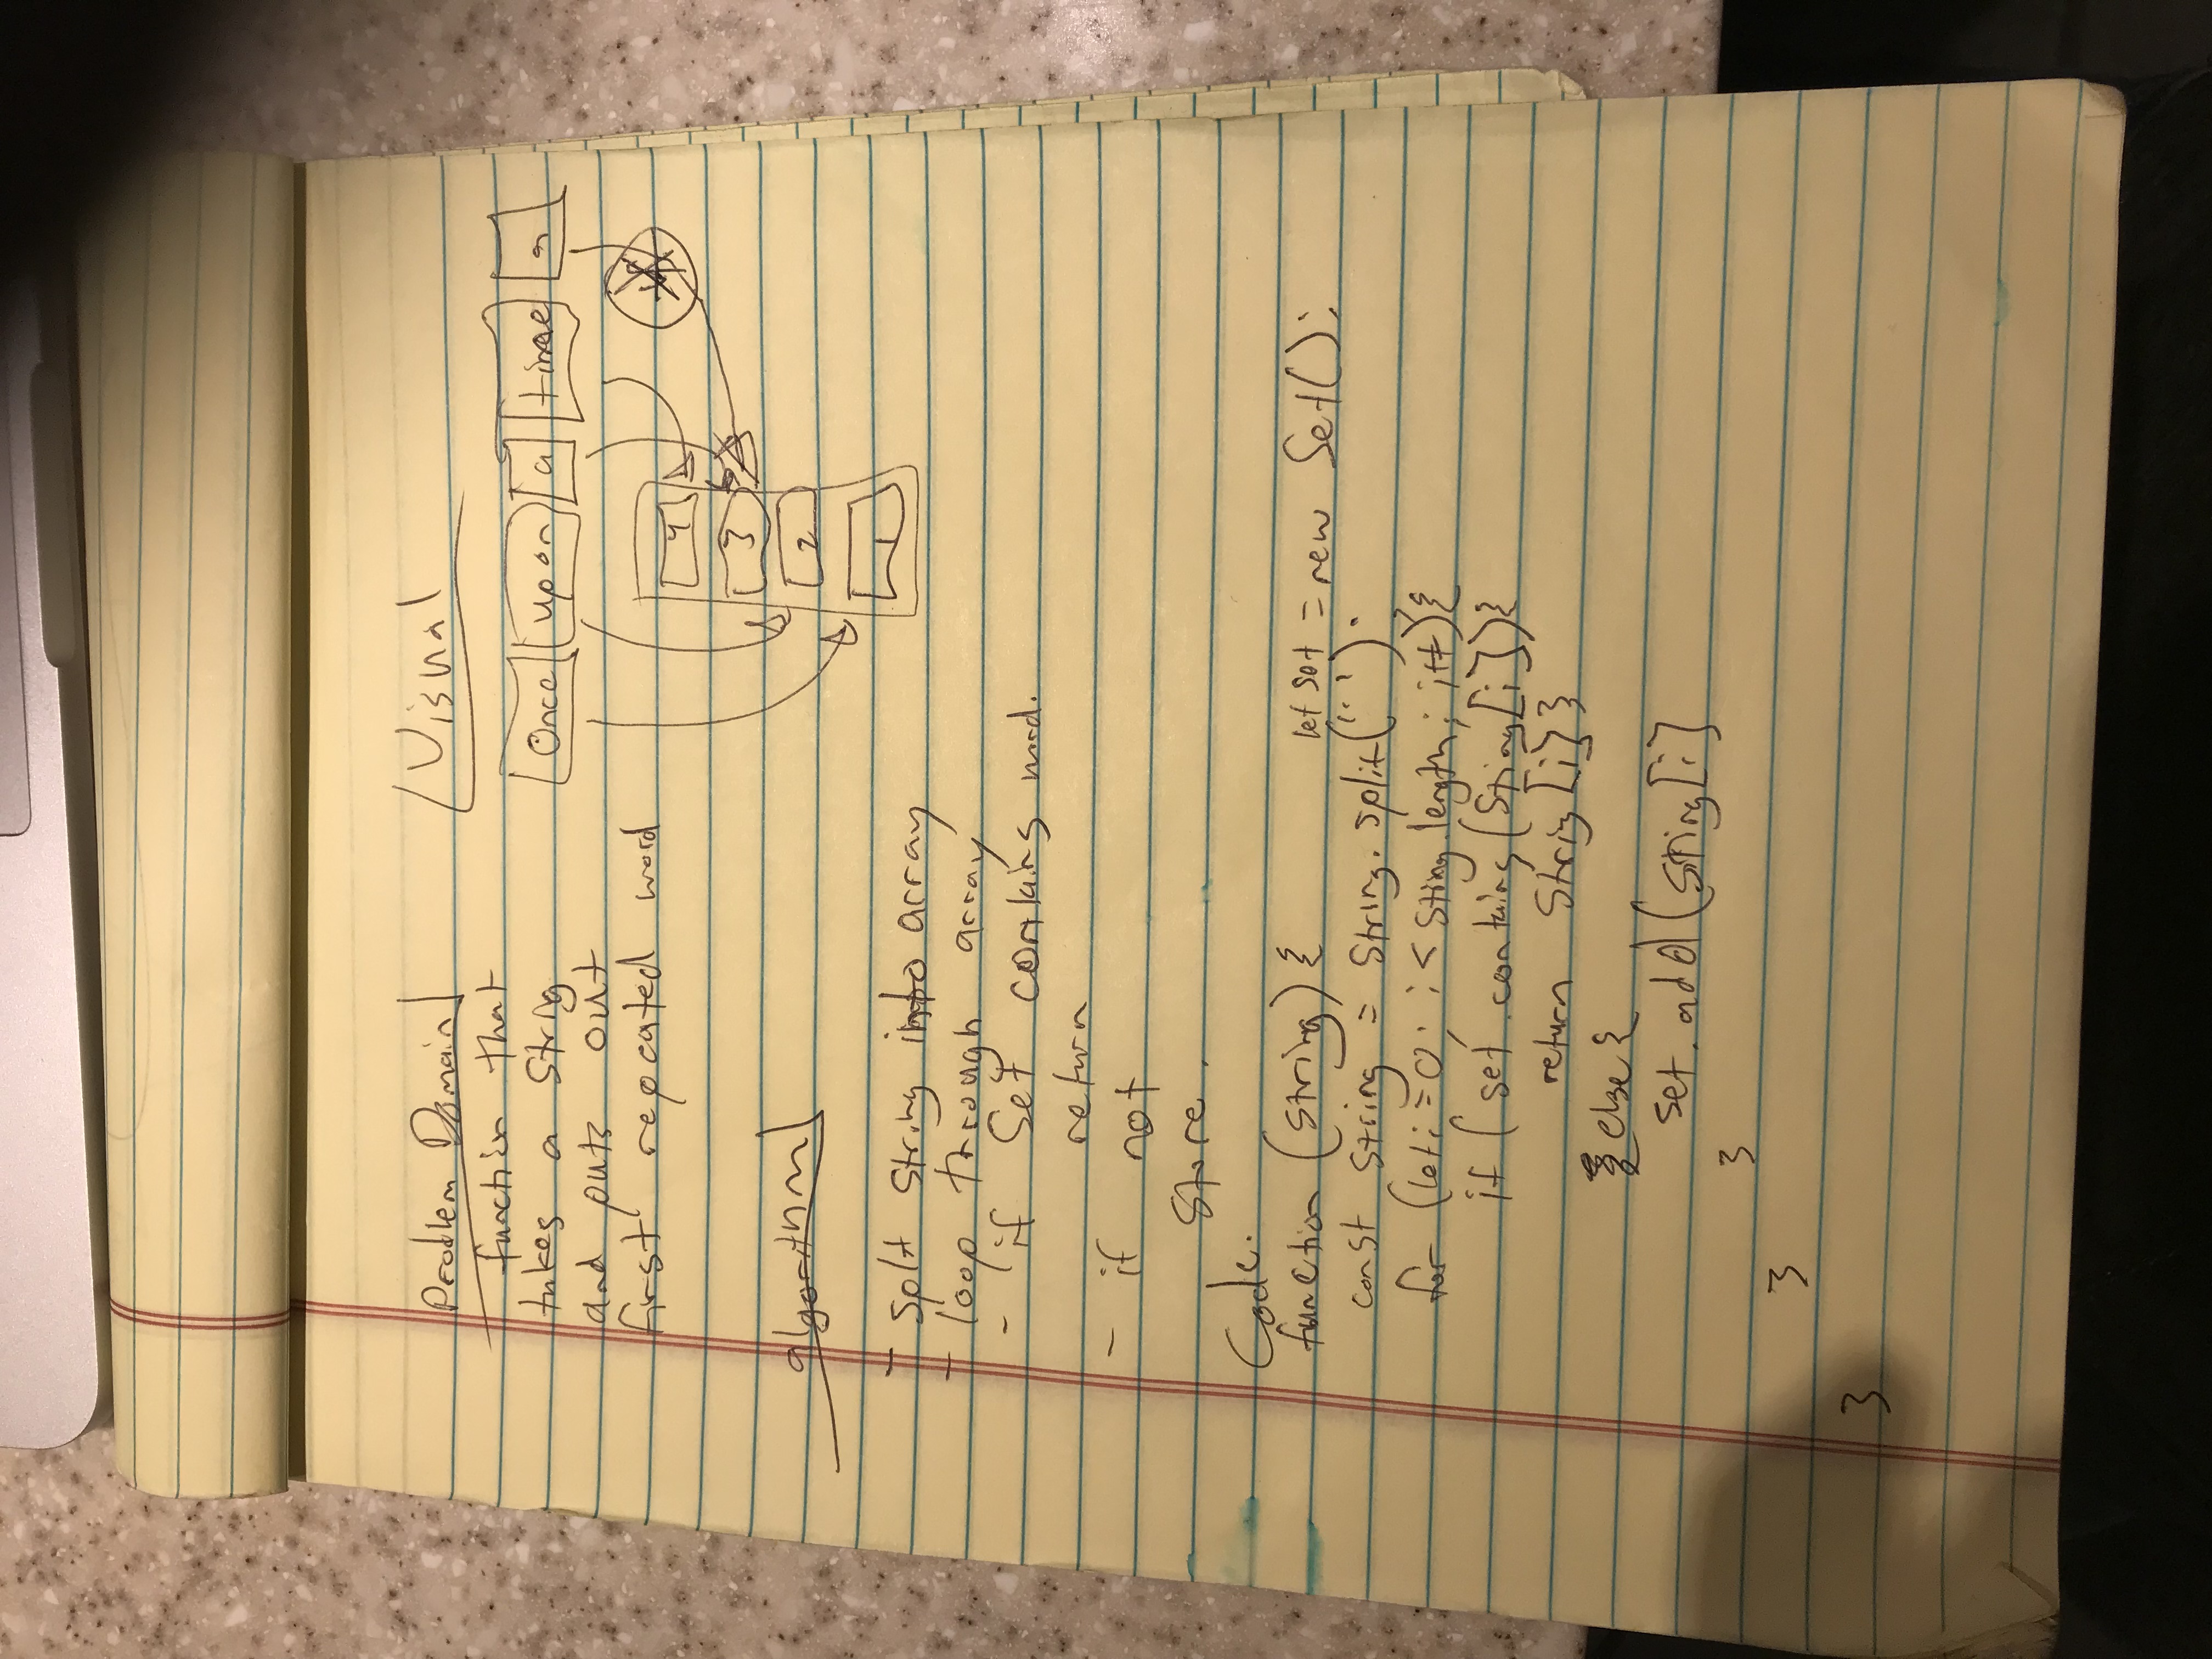 Problem Domain
function that
takes a string
and puts out
first repeated word
Visual
Once upon a time a
4
3
2
1
algorithm
- split string into array
- loop through array
- if Set contains word.
return
- if not
store.
Code.
function (string) {
let set = new Set();
const string = string.split(" ");
for (let i = 0; i < sting.length; i++){
if (set.contains(Sting[i])){
return String[i]}
else {
set.add(Sting[i]
}
}
}